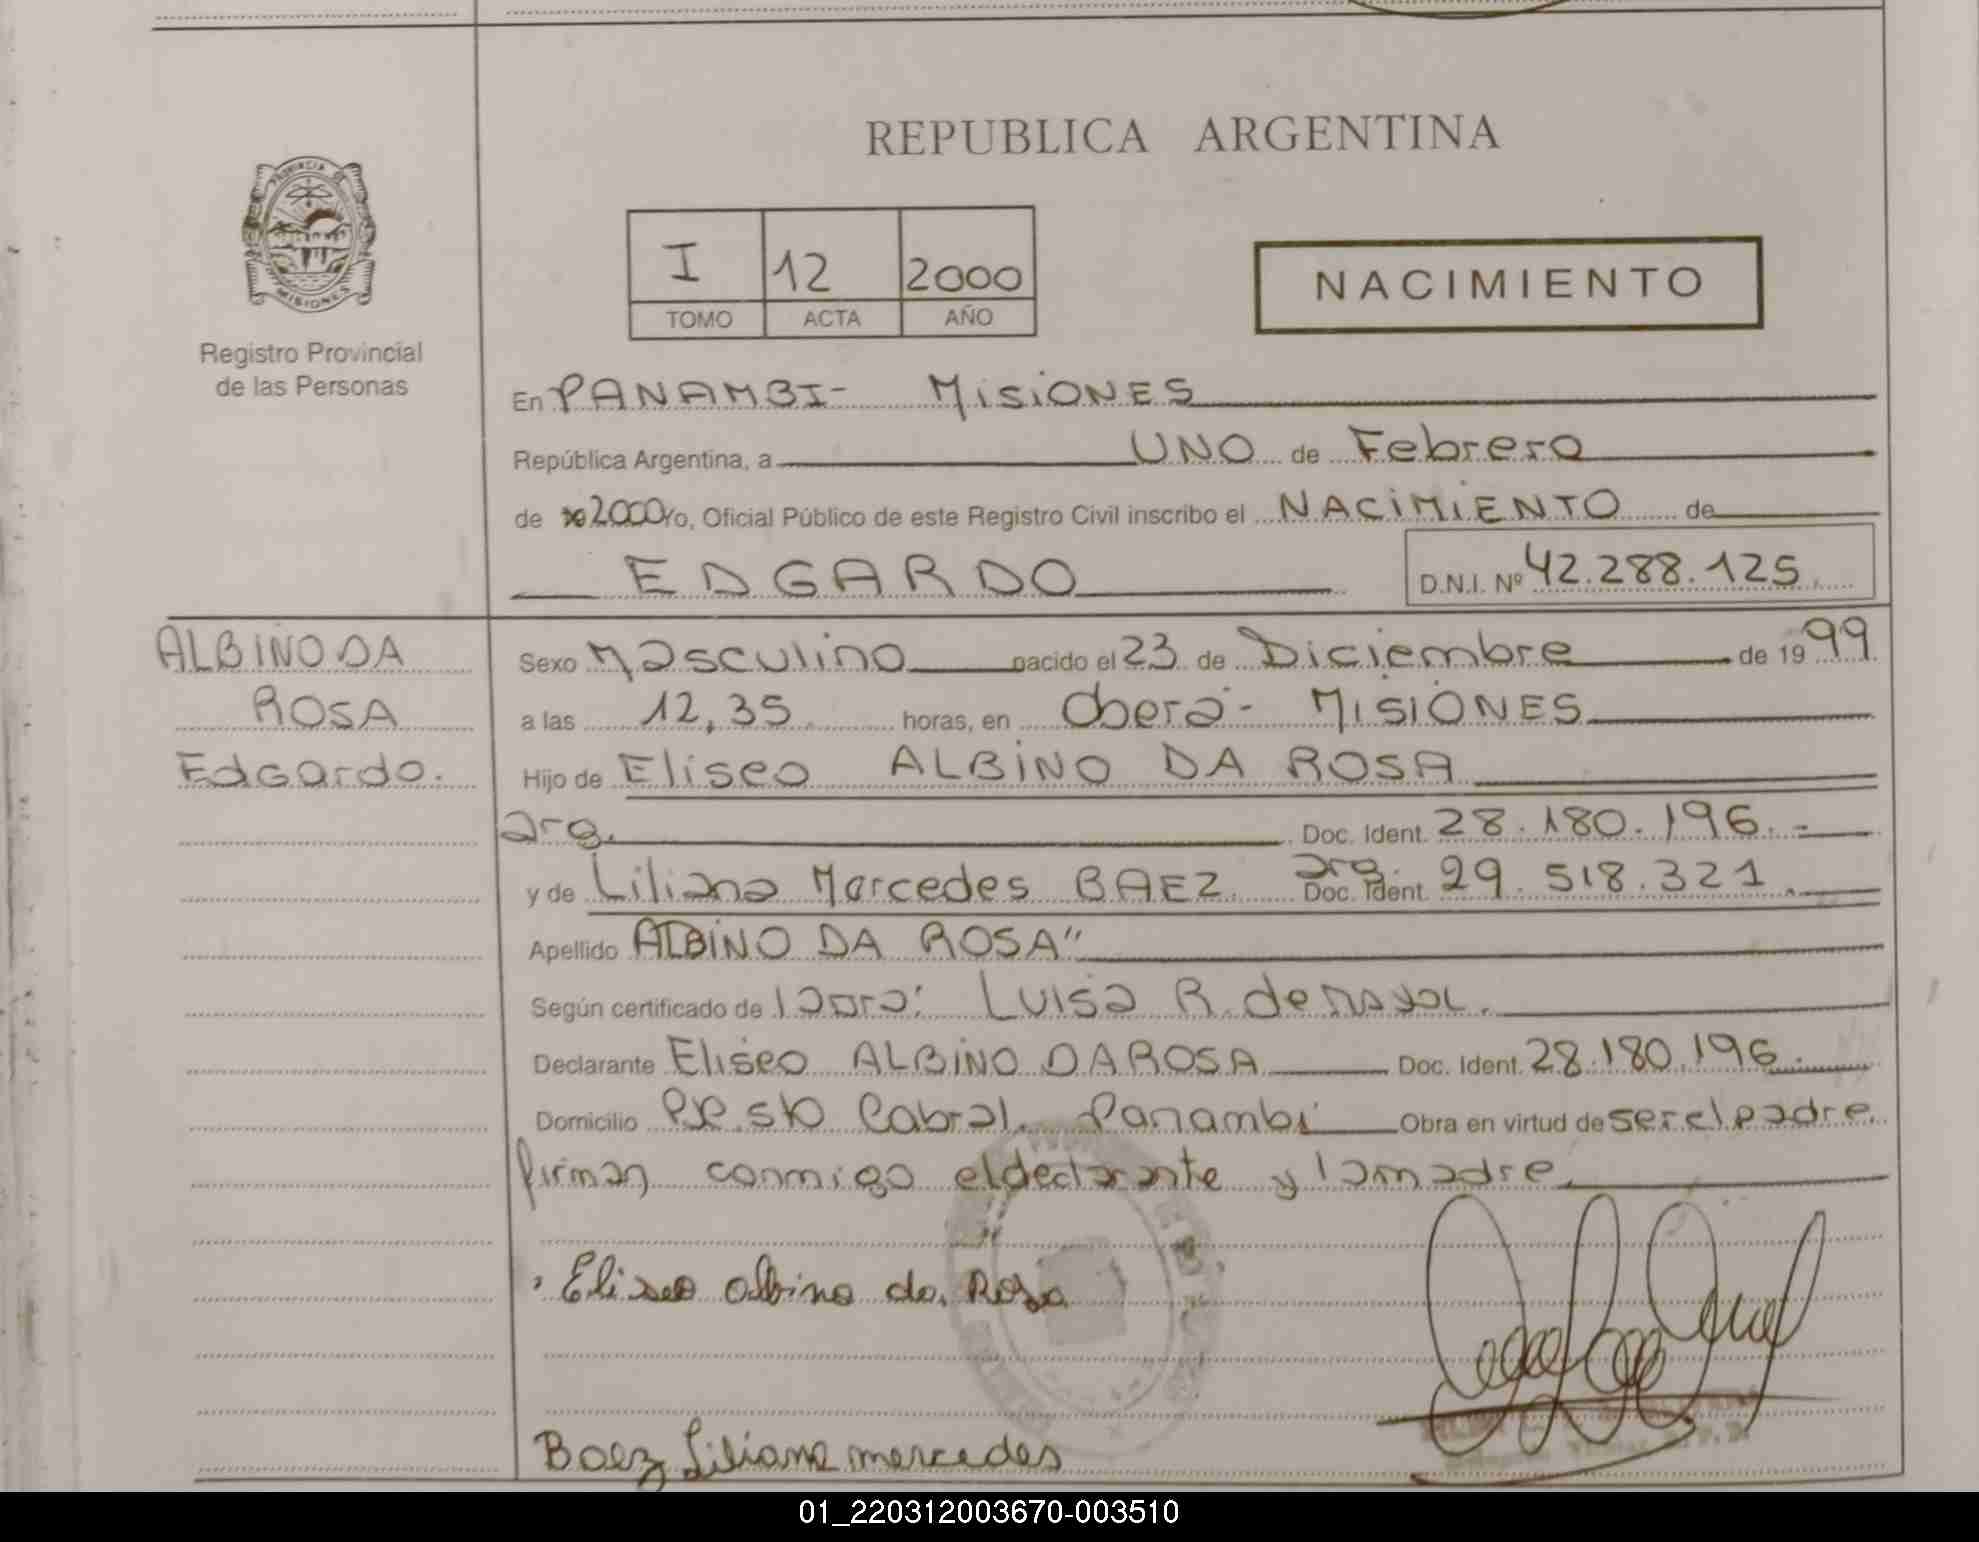 REPUBLICA ARGENTINA
PROVINCIA DE
MISIONES
Registro Provincial
de las Personas
I 12 2000
TOMO ACTA AÑO
NACIMIENTO
En PANAMBI- MISIONES
República Argentina, a UNO de Febrero
de 2000 Yo, Oficial Público de este Registro Civil inscribo el NACIMIENTO de
EDGARDO D.N.I. Nº 42.288.125
ALBINO DA
ROSA
Edgardo.
Sexo Masculino nacido el 23 de Diciembre de 1999
a las 12,35 horas, en Oberá- MISIONES
Hijo de Eliseo ALBINO DA ROSA
arg. Doc. Ident. 28.180.196.-
y de Liliana Mercedes BAEZ arg. Doc. Ident. 29.518.321.
Apellido ALBINO DA ROSA"
Según certificado de la Dra: Luisa R. de
Declarante Eliseo ALBINO DA ROSA Doc. Ident. 28.180.196.
Domicilio Cabral. Panambi Obra en virtud de ser el padre.
firman conmigo el declarante y la madre.
Eliseo albino da Rosa
Baez Liliana mercedes
01_220312003670-003510